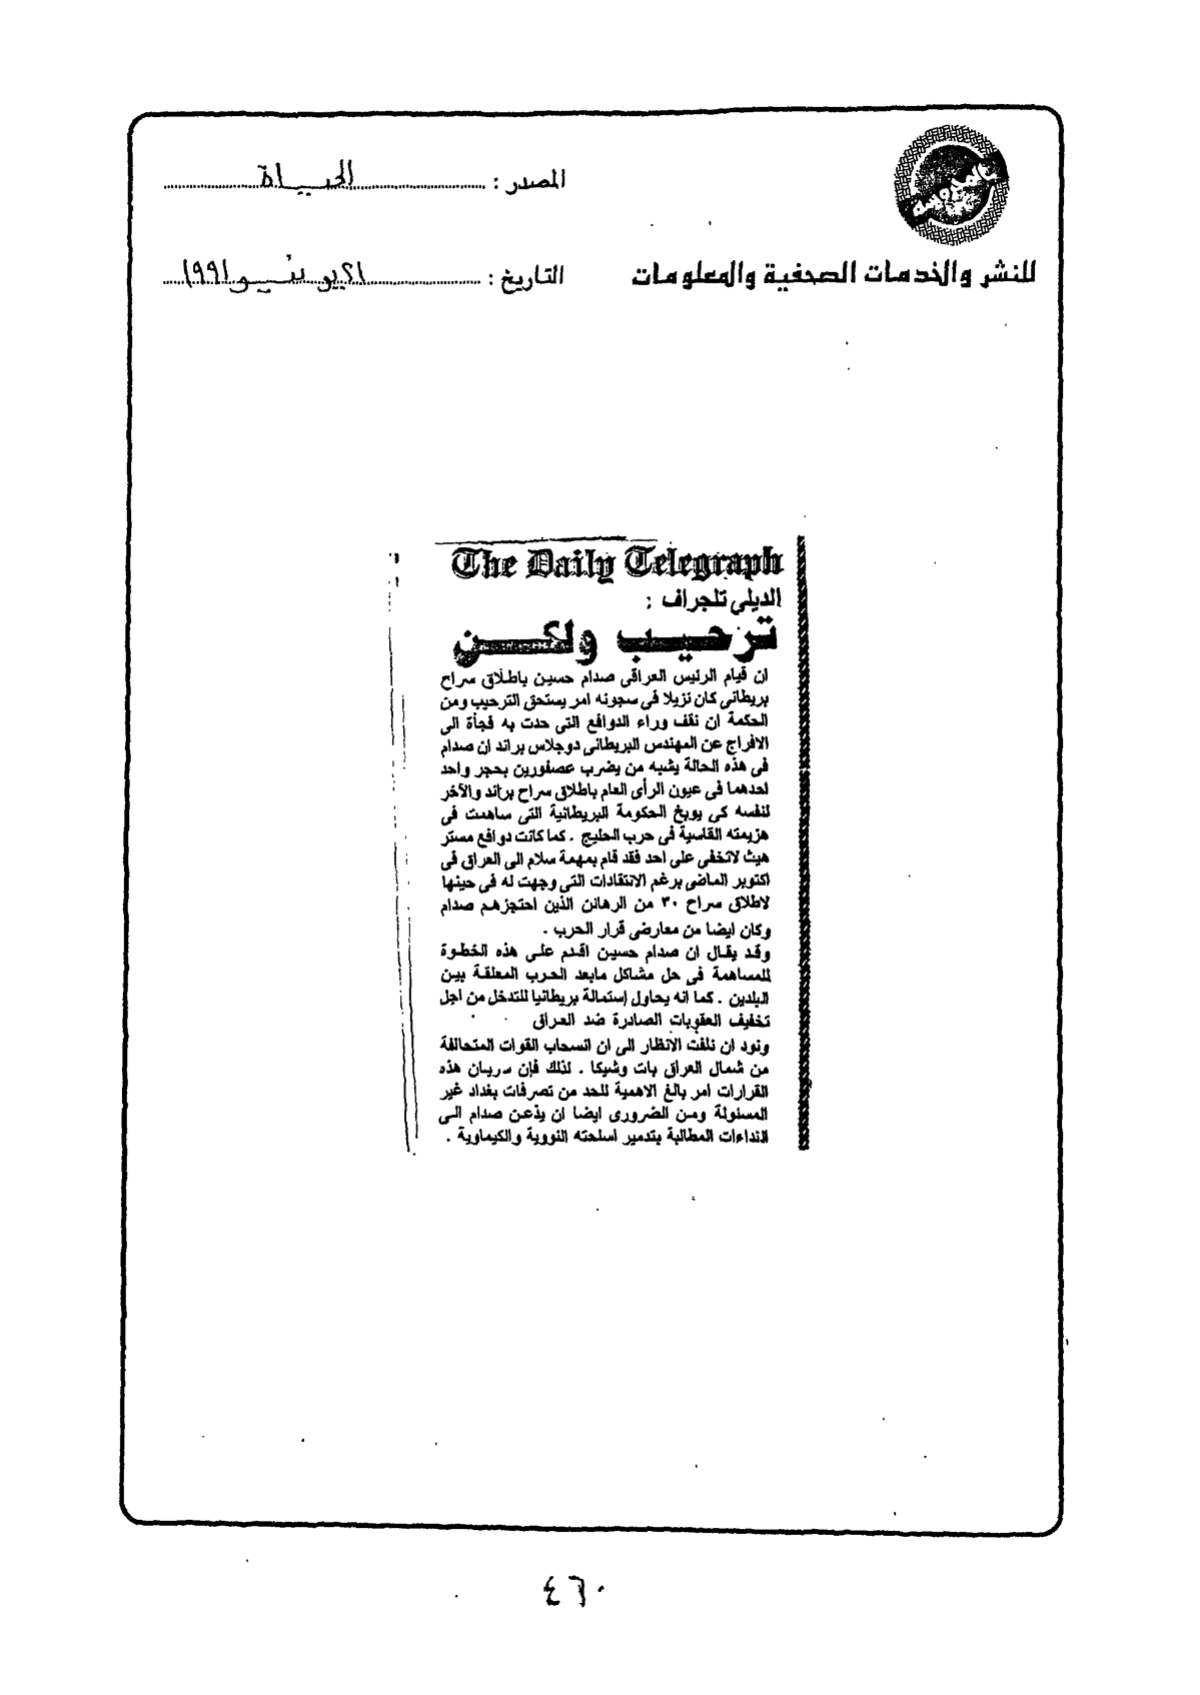 المصدر : الحياة
للنشر والخدمات الصحفية والمعلومات
التاريخ : ٢١ يونيو ١٩٩١
The Daily Telegraph
الديلى تلجراف :
ترحيب ولكن
ان قيام الرئيس العراقى صدام حسين باطلاق سراح
بريطانى كان نزيلا فى سجونه امر يستحق الترحيب ومن
الحكمة ان نقف وراء الدوافع التى حدت به فجأة الى
الافراج عن المهندس البريطانى دوجلاس براند ان صدام
فى هذه الحالة يشبه من يضرب عصفورين بحجر واحد
احدهما فى عيون الرأى العام باطلاق سراح براند والآخر
لنفسه كى يوبخ الحكومة البريطانية التى ساهمت فى
هزيمته القاسية فى حرب الخليج . كما كانت دوافع مستر
هيث لاتخفى على احد فقد قام بمهمة سلام الى العراق فى
اكتوبر الماضى برغم الانتقادات التى وجهت له فى حينها
لاطلاق سراح ٣٠ من الرهائن الذين احتجزهم صدام
وكان ايضا من معارضى قرار الحرب .
وقد يقال ان صدام حسين اقدم على هذه الخطوة
للمساهمة فى حل مشاكل مابعد الحرب المعلقة بين
البلدين . كما انه يحاول إستمالة بريطانيا للتدخل من اجل
تخفيف العقوبات الصادرة ضد العراق
ونود ان نلفت الانظار الى ان انسحاب القوات المتحالفة
من شمال العراق بات وشيكا . لذلك فإن سريان هذه
القرارات امر بالغ الاهمية للحد من تصرفات بغداد غير
المسئولة ومن الضرورى ايضا ان يذعن صدام الى
النداءات المطالبة بتدمير اسلحته النووية والكيماوية .
٤٦٠